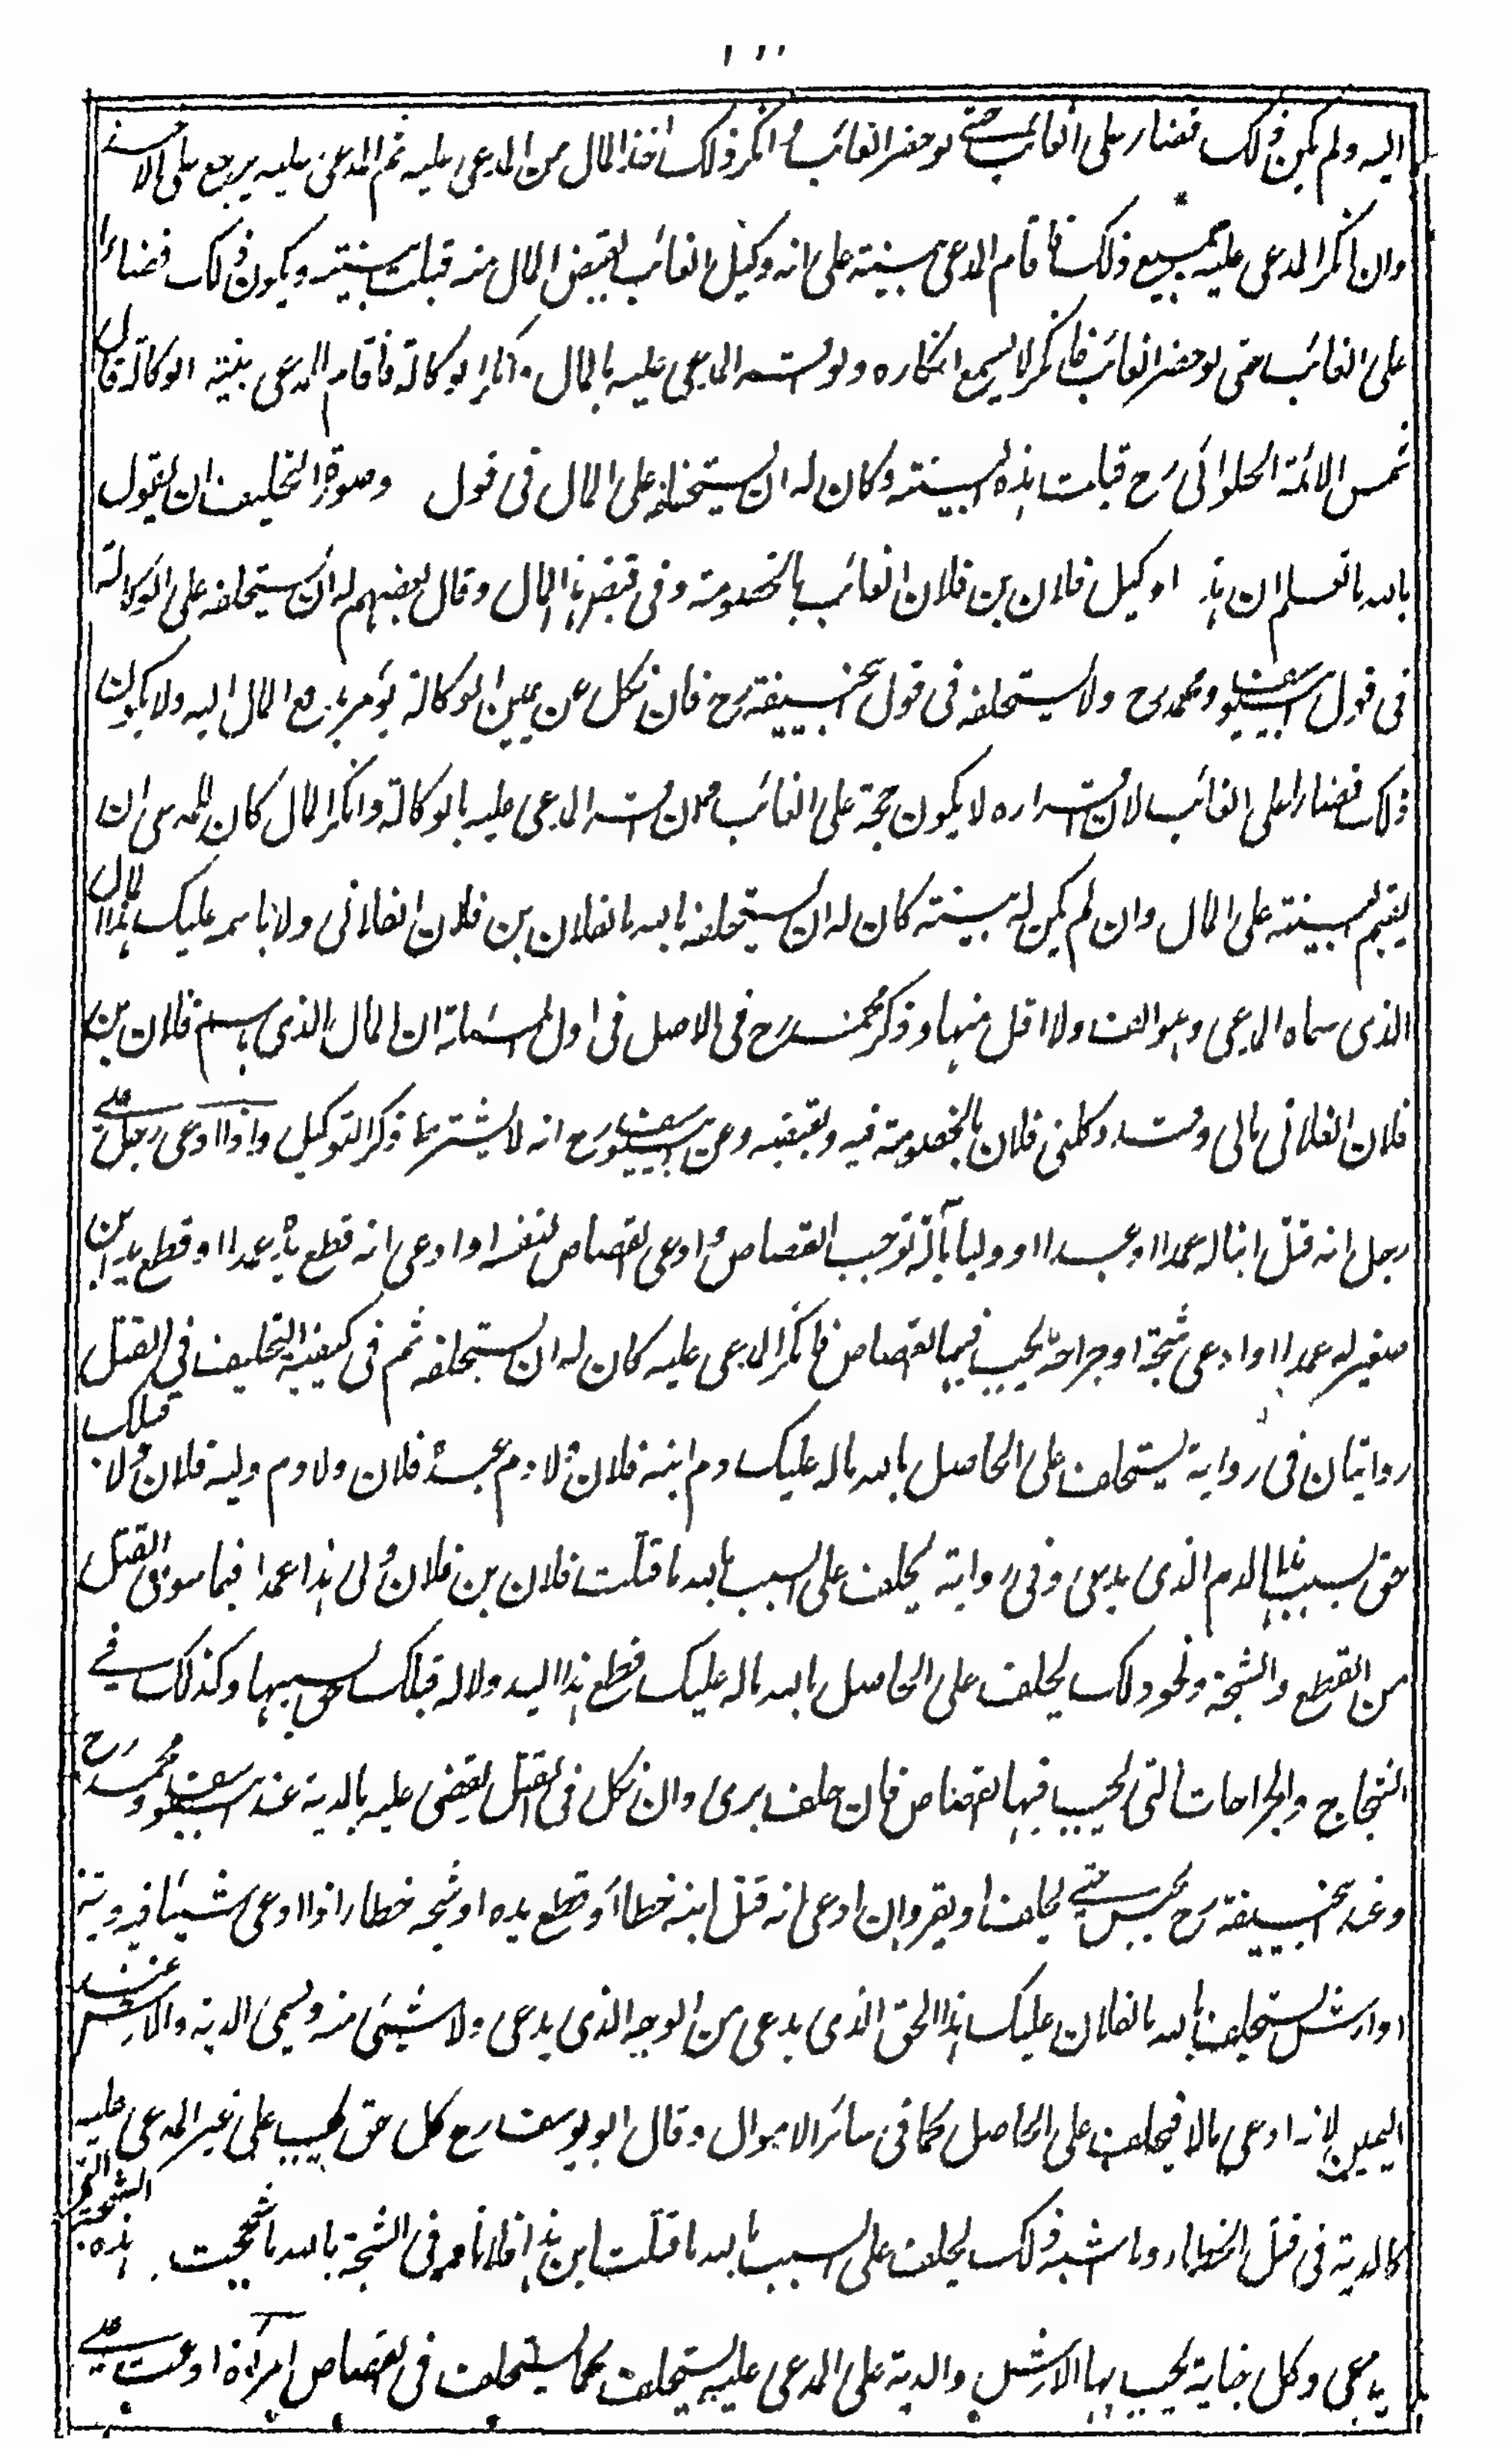 اليه ولم يكن ذلك قضاء على الغائب حتى لو حضر الغائب و انكر ذلك اخذ المال من المدعى عليه ثم المدعى عليه يرجع على الآخذ
وان انكر المدعى عليه جميع ذلك فاقام المدعى بينة على انه وكيل الغائب بقبض المال منه قبلت بينته ويكون ذلك قضاء
على الغائب حتى لو حضر الغائب فانكر لا يسمع انكاره ولو اقر المدعى عليه بالمال وانكر الوكالة فاقام المدعى بينة الوكالة قال
شمس الائمة الحلوائى رح قبلت هذه البينة وكان له ان يستحلفه على المال فى قول وصورة التحليف ان يقول
بالله ما تعلم ان هذا وكيل فلان بن فلان الغائب بالخصومة وفى قبض هذا المال وقال بعضهم له ان يستحلفه على الوكالة
فى قول ابييوسف ومحمد رح ولا يستحلفه فى قول ابيحنيفة رح فان نكل عن يمين الوكالة يؤمر بدفع المال اليه ولا يكون
ذلك قضاء على الغائب لان اقراره لا يكون حجة على الغائب وان اقر المدعى عليه بالوكالة وانكر المال كان للمدعى ان
يقيم البينة على المال وان لم يكن له بينة كان له ان يستحلفه بالله ما لفلان بن فلان الفلانى ولا باسمه عليك هذا المال
الذى سماه المدعى وهو الف ولا اقل منها وذكر محمد رح فى الاصل فى اول المسئلة ان المال الذى باسم فلان بن
فلان الفلانى مالى وقد وكلنى فلان بالخصومة فيه وبقبضه وعن ابييوسف رح انه لا يشترط ذكر التوكيل واذا ادعى رجل على
رجل انه قتل ابنا له عمدا او عبدا او وليا بآلة توجب القصاص و ادعى القصاص لنفسه او ادعى انه قطع يده عمدا او قطع يد ابن
صغير له عمدا او ادعى شجة او جراحة يجب فيها القصاص فانكر المدعى عليه كان له ان يستحلفه ثم فى كيفية التحليف فى القتل
روايتان فى رواية يستحلف على الحاصل بالله ما له عليك دم ابنه فلان ولا دم عبده فلان ولا دم وليه فلان ولا قبلك
حق بسبب هذا الدم الذى يدعى وفى رواية يحلف على السبب بالله ما قتلت فلان بن فلان ولى هذا عمدا فيما سوى القتل
من القطع والشجة ونحو ذلك يحلف على الحاصل بالله ما له عليك قطع هذا اليد ولا له قبلك حق بسببها وكذلك فى
الشجاج والجراحات التى يجب فيها القصاص فان حلف برى وان نكل فى القتل يقضى عليه بالدية عند ابييوسف ومحمد رح
وعند ابيحنيفة رح يحبس حتى يحلف او يقر وان ادعى انه قتل ابنه خطأ او قطع يده او شجه خطاء او ادعى شيئا فيه دية
او ارش يستحلف بالله ما لفلان عليك هذا الحق الذى يدعى من الوجه الذى يدعى ولا شيئى منه ويسمى الدية والارش عند
اليمين لانه ادعى مالا فيحلف على الحاصل كما فى سائر الاموال وقال ابو يوسف رح كل حق يجب على غير المدعى عليه
كالدية فى قتل الخطاء وما اشبه ذلك يحلف على السبب بالله ما قتلت ابن هذا فلانا وفى الشجة بالله ما شججت هذه الشجة التى
يدعى وكل جناية يجب بها الارش والدية على المدعى عليه يستحلف كما يستحلف فى القصاص امرأة ادعت على